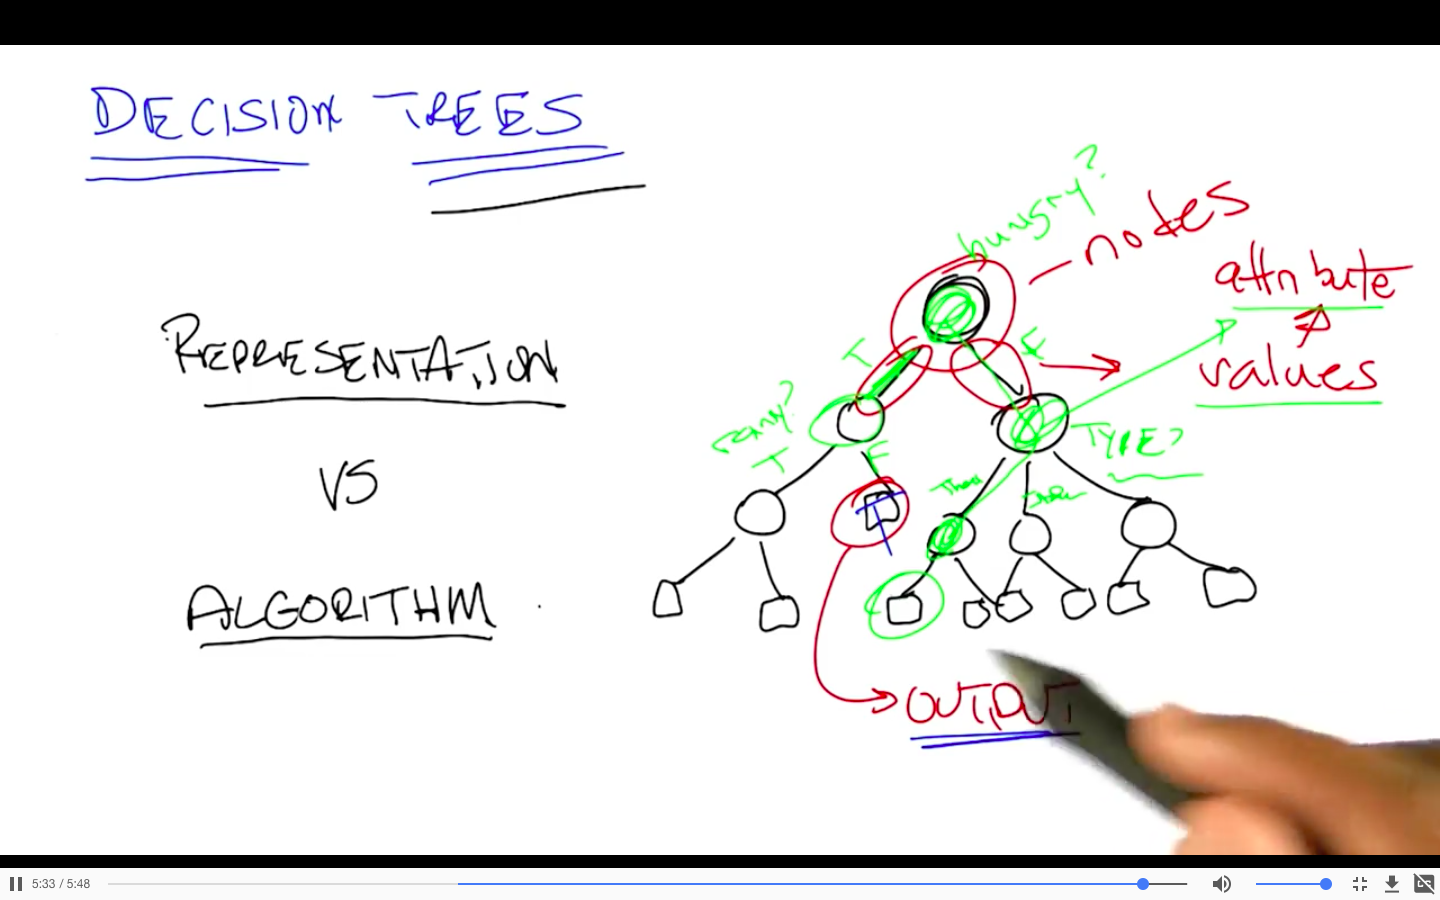 DECISION TREES
REPRESENTATION
VS
ALGORITHM
hungry?
nodes
attribute
values
T
F
rainy?
T
F
TYPE?
Thai
T
OUTPUT
5:33 / 5:48